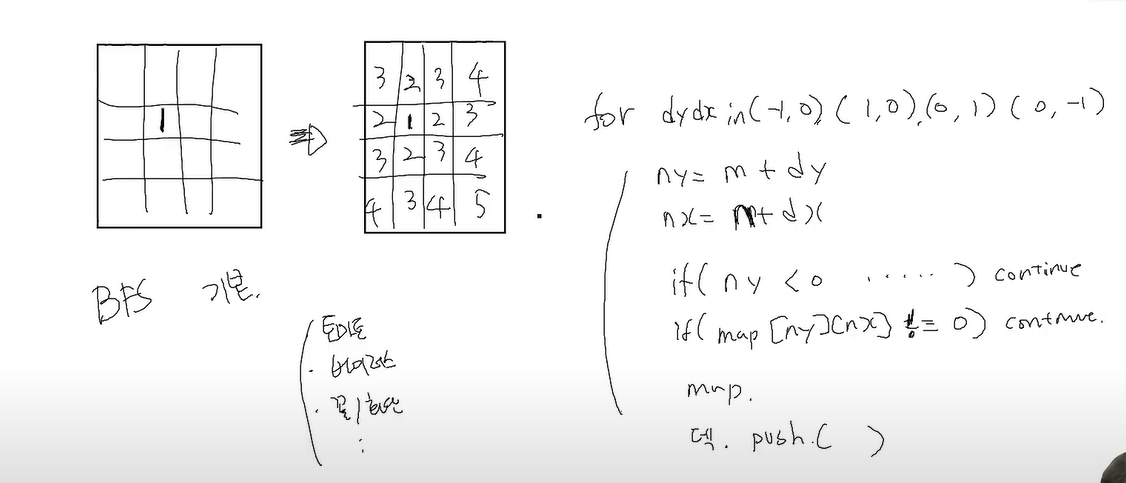 1
⇒
3 2 3 4
2 1 2 3
3 2 3 4
4 3 4 5
BFS 기본.
토마토
· 바이러스
· 
:
for dydx in (-1,0), (1,0), (0,1) (0,-1)
ny= m + dy
nx= m + dx
if( ny <0 ..... ) continue
if( map [ny][nx] != 0) continue.
map.
덱. push.( )